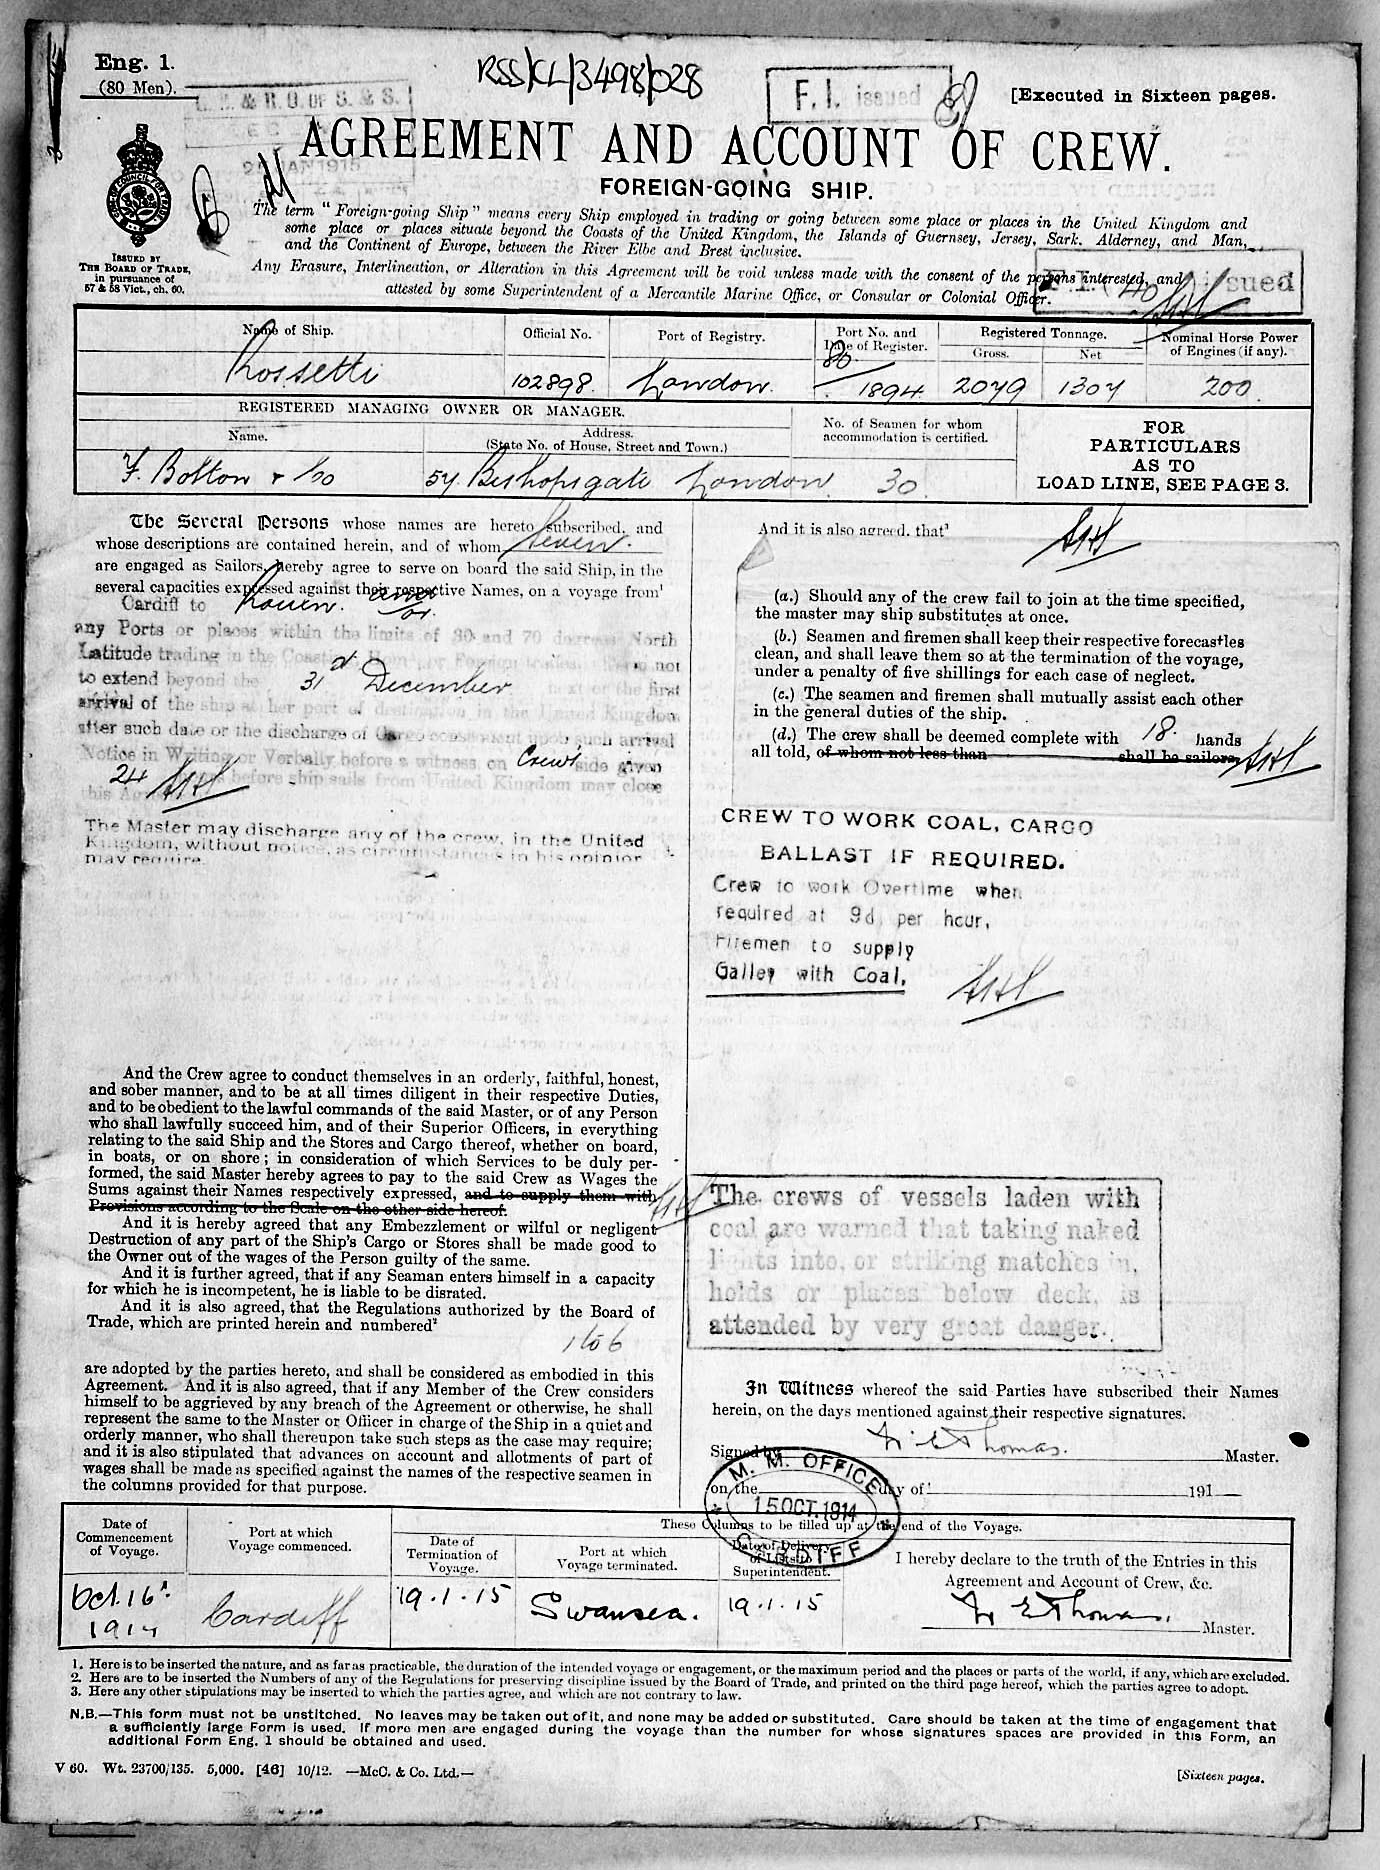 Eng. 1.
(80 Men).
RSS/CL/3498/028
F. I. issued
[Executed in Sixteen pages.
AGREEMENT AND ACCOUNT OF CREW.
FOREIGN-GOING SHIP.
ISSUED BY
THE BOARD OF TRADE,
in pursuance of
57 & 58 Vict., ch. 60.
The term "Foreign-going Ship" means every Ship employed in trading or going between some place or places in the United Kingdom and
some place or places situate beyond the Coasts of the United Kingdom, the Islands of Guernsey, Jersey, Sark, Alderney, and Man,
and the Continent of Europe, between the River Elbe and Brest inclusive.
Any Erasure, Interlineation, or Alteration in this Agreement will be void unless made with the consent of the persons interested, and
attested by some Superintendent of a Mercantile Marine Office, or Consular or Colonial Officer.
F.I (40) issued
Name of Ship. Official No. Port of Registry. Port No. and Date of Register. Registered Tonnage. Gross. Net Nominal Horse Power of Engines (if any).
Rossetti 102898. London. 80/1894 2079 1307 200.
REGISTERED MANAGING OWNER OR MANAGER.
Name. Address. (State No. of House, Street and Town.) No. of Seamen for whom accommodation is certified.
F. Bolton & Co 57 Bishopsgate London. 30.
FOR
PARTICULARS
AS TO
LOAD LINE, SEE PAGE 3.
The Several Persons whose names are hereto subscribed, and
whose descriptions are contained herein, and of whom Seven.
are engaged as Sailors, hereby agree to serve on board the said Ship, in the
several capacities expressed against their respective Names, on a voyage from¹
Cardiff to Rouen. and/or.
any Ports or places within the limits of 30 and 70 degrees North
Latitude trading in the
to extend beyond the 31st December next or the first
arrival of the ship at her port of destination in the United Kingdom
after such date or the discharge of Cargo consequent upon such arrival
Notice in Writing or Verbally before a witness on Crew's side given
24 before ship sails from United Kingdom may close
this
The Master may discharge any of the crew, in the United
Kingdom, without notice, as circumstances in his opinion
may require.
And the Crew agree to conduct themselves in an orderly, faithful, honest,
and sober manner, and to be at all times diligent in their respective Duties,
and to be obedient to the lawful commands of the said Master, or of any Person
who shall lawfully succeed him, and of their Superior Officers, in everything
relating to the said Ship and the Stores and Cargo thereof, whether on board,
in boats, or on shore; in consideration of which Services to be duly per-
formed, the said Master hereby agrees to pay to the said Crew as Wages the
Sums against their Names respectively expressed, and to supply them with
Provisions according to the Scale on the other side hereof.
And it is hereby agreed that any Embezzlement or wilful or negligent
Destruction of any part of the Ship's Cargo or Stores shall be made good to
the Owner out of the wages of the Person guilty of the same.
And it is further agreed, that if any Seaman enters himself in a capacity
for which he is incompetent, he is liable to be disrated.
And it is also agreed, that the Regulations authorized by the Board of
Trade, which are printed herein and numbered²
1 to 6
are adopted by the parties hereto, and shall be considered as embodied in this
Agreement. And it is also agreed, that if any Member of the Crew considers
himself to be aggrieved by any breach of the Agreement or otherwise, he shall
represent the same to the Master or Officer in charge of the Ship in a quiet and
orderly manner, who shall thereupon take such steps as the case may require;
and it is also stipulated that advances on account and allotments of part of
wages shall be made as specified against the names of the respective seamen in
the columns provided for that purpose.
And it is also agreed, that³
(a.) Should any of the crew fail to join at the time specified,
the master may ship substitutes at once.
(b.) Seamen and firemen shall keep their respective forecastles
clean, and shall leave them so at the termination of the voyage,
under a penalty of five shillings for each case of neglect.
(c.) The seamen and firemen shall mutually assist each other
in the general duties of the ship.
(d.) The crew shall be deemed complete with 18 hands
all told, of whom not less than shall be sailors.
CREW TO WORK COAL, CARGO
BALLAST IF REQUIRED.
Crew to work Overtime when
required at 9d. per hour.
Firemen to supply
Galley with Coal.
The crews of vessels laden with
coal are warned that taking naked
lights into, or striking matches in,
holds or places below deck, is
attended by very great danger.
In Witness whereof the said Parties have subscribed their Names
herein, on the days mentioned against their respective signatures.
Signed by W E Thomas. Master.
on the day of 191
M. M. OFFICE
15 OCT. 1914
CARDIFF
These Columns to be filled up at the end of the Voyage.
Date of Commencement of Voyage. Port at which Voyage commenced. Date of Termination of Voyage. Port at which Voyage terminated. Date of Delivery of Lists to Superintendent.
I hereby declare to the truth of the Entries in this
Agreement and Account of Crew, &c.
Oct. 16 1914 Cardiff 19.1.15 Swansea. 19.1.15 W E Thomas. Master.
1. Here is to be inserted the nature, and as far as practicable, the duration of the intended voyage or engagement, or the maximum period and the places or parts of the world, if any, which are excluded.
2. Here are to be inserted the Numbers of any of the Regulations for preserving discipline issued by the Board of Trade, and printed on the third page hereof, which the parties agree to adopt.
3. Here any other stipulations may be inserted to which the parties agree, and which are not contrary to law.
N.B.—This form must not be unstitched. No leaves may be taken out of it, and none may be added or substituted. Care should be taken at the time of engagement that
a sufficiently large Form is used. If more men are engaged during the voyage than the number for whose signatures spaces are provided in this Form, an
additional Form Eng. 1 should be obtained and used.
V 60. Wt. 23700/135. 5,000. [46] 10/12. —McC. & Co. Ltd.—
[Sixteen pages.